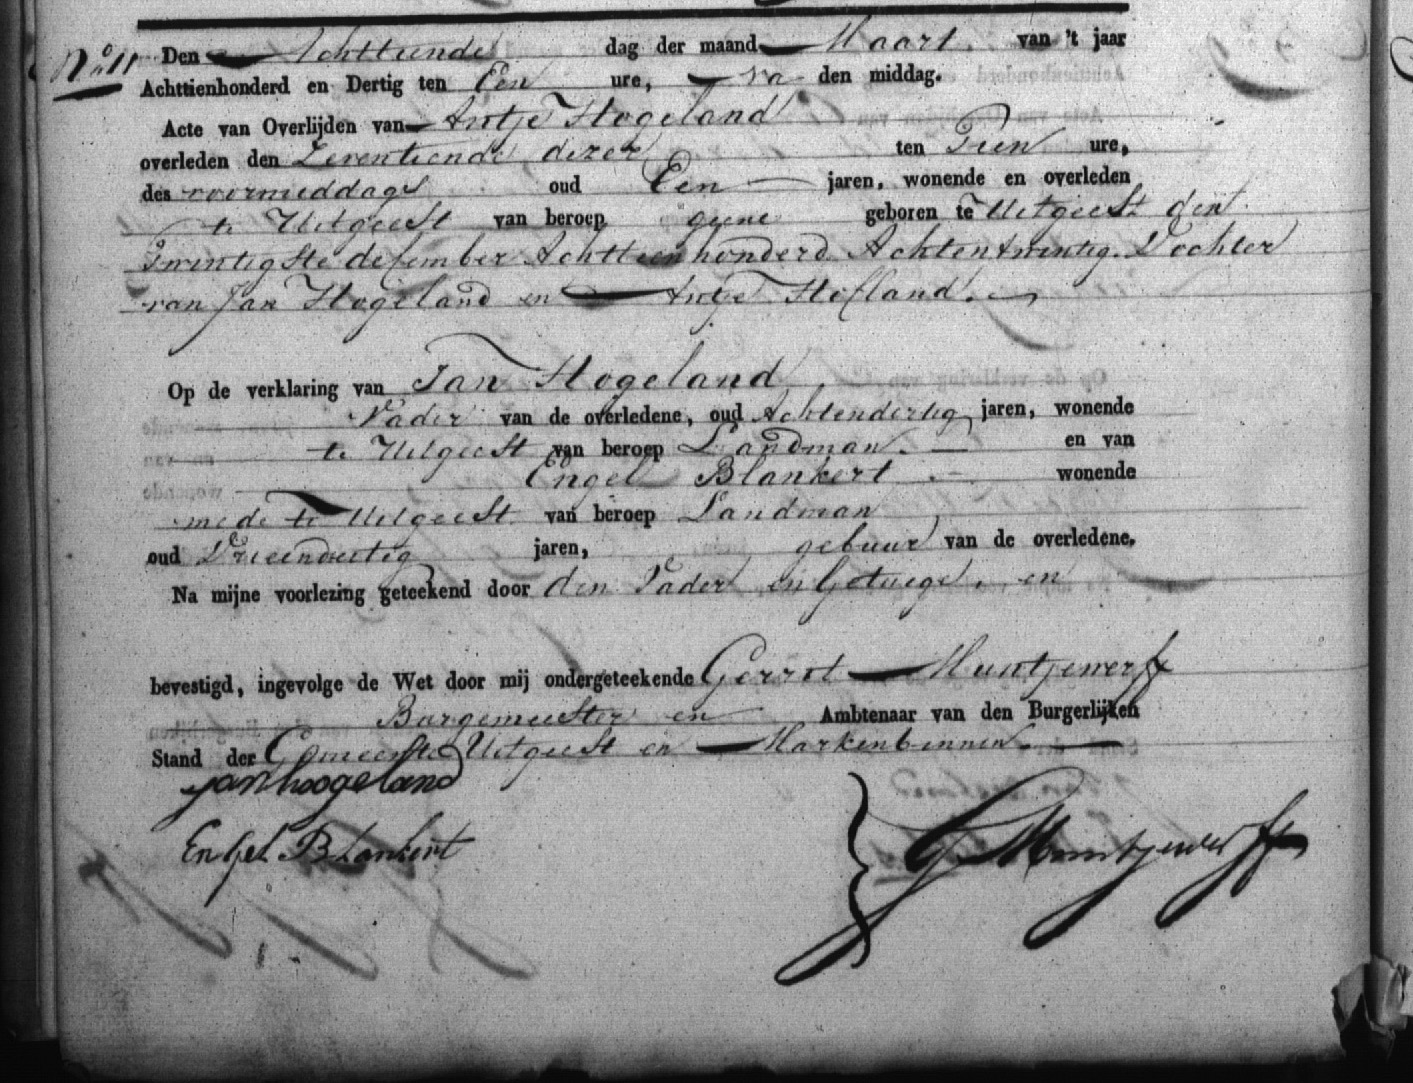 No 11 Den Achttiende dag der maand Maart. van 't jaar
Achttienhonderd en Dertig ten Een ure, na den middag.
Acte van Overlijden van Antje Hogeland
overleden den Zeventiende dezer ten Tien ure,
des voormiddags oud Een jaren, wonende en overleden
te Uitgeest van beroep geene geboren te Uitgeest den
Twintigste december Achttienhonderd Achtentwintig. Dochter
van Jan Hogeland en Antje Hofland.
Op de verklaring van Jan Hogeland
Vader van de overledene, oud Achtendertig jaren, wonende
te Uitgeest van beroep Landman. en van
Engel Blankert wonende
mede te Uitgeest van beroep Landman
oud Drieendertig jaren, gebuur van de overledene.
Na mijne voorlezing geteekend door den Vader en Getuege. en
bevestigd, ingevolge de Wet door mij ondergeteekende Gerrot Muntjewerff
Burgemeester en Ambtenaar van den Burgerlijken
Stand der Gemeente Uitgeest en Markenbinnen.
jan hoogeland
Engel Blankert
G Muntjewerff